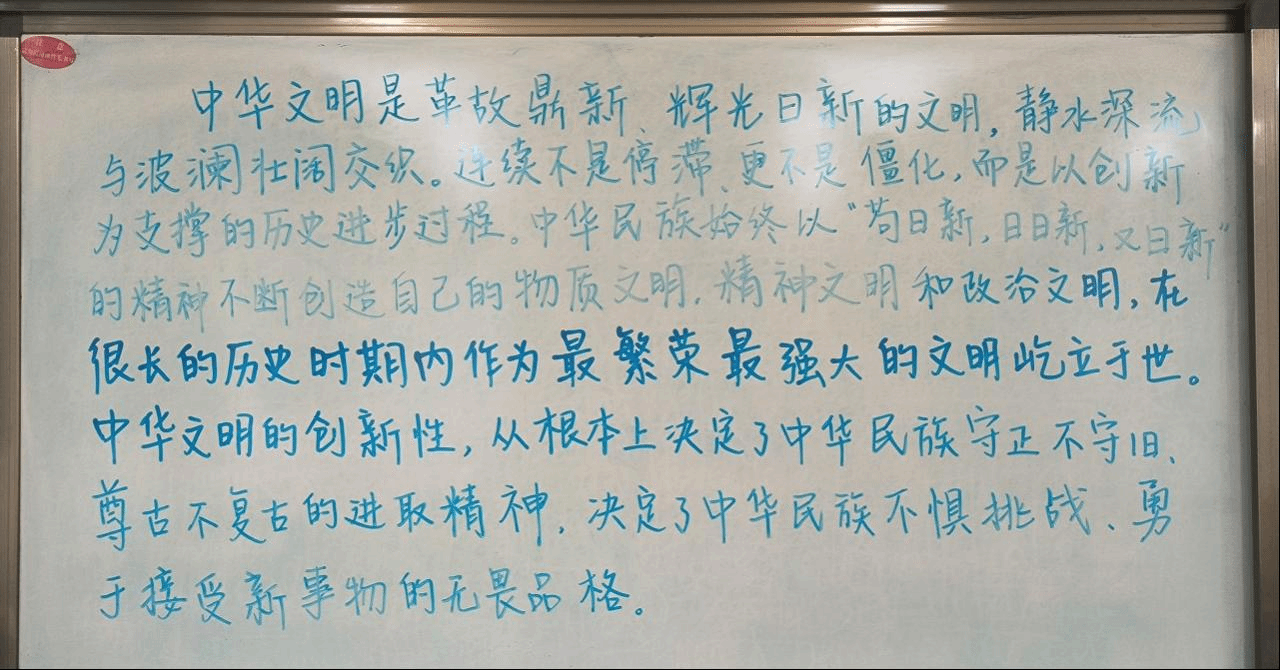 中华文明是革故鼎新、辉光日新的文明，静水深流
与波澜壮阔交织。连续不是停滞、更不是僵化，而是以创新
为支撑的历史进步过程。中华民族始终以“苟日新，日日新，又日新”
的精神不断创造自己的物质文明、精神文明和政治文明，在
很长的历史时期内作为最繁荣最强大的文明屹立于世。
中华文明的创新性，从根本上决定了中华民族守正不守旧、
尊古不复古的进取精神，决定了中华民族不惧挑战、勇
于接受新事物的无畏品格。